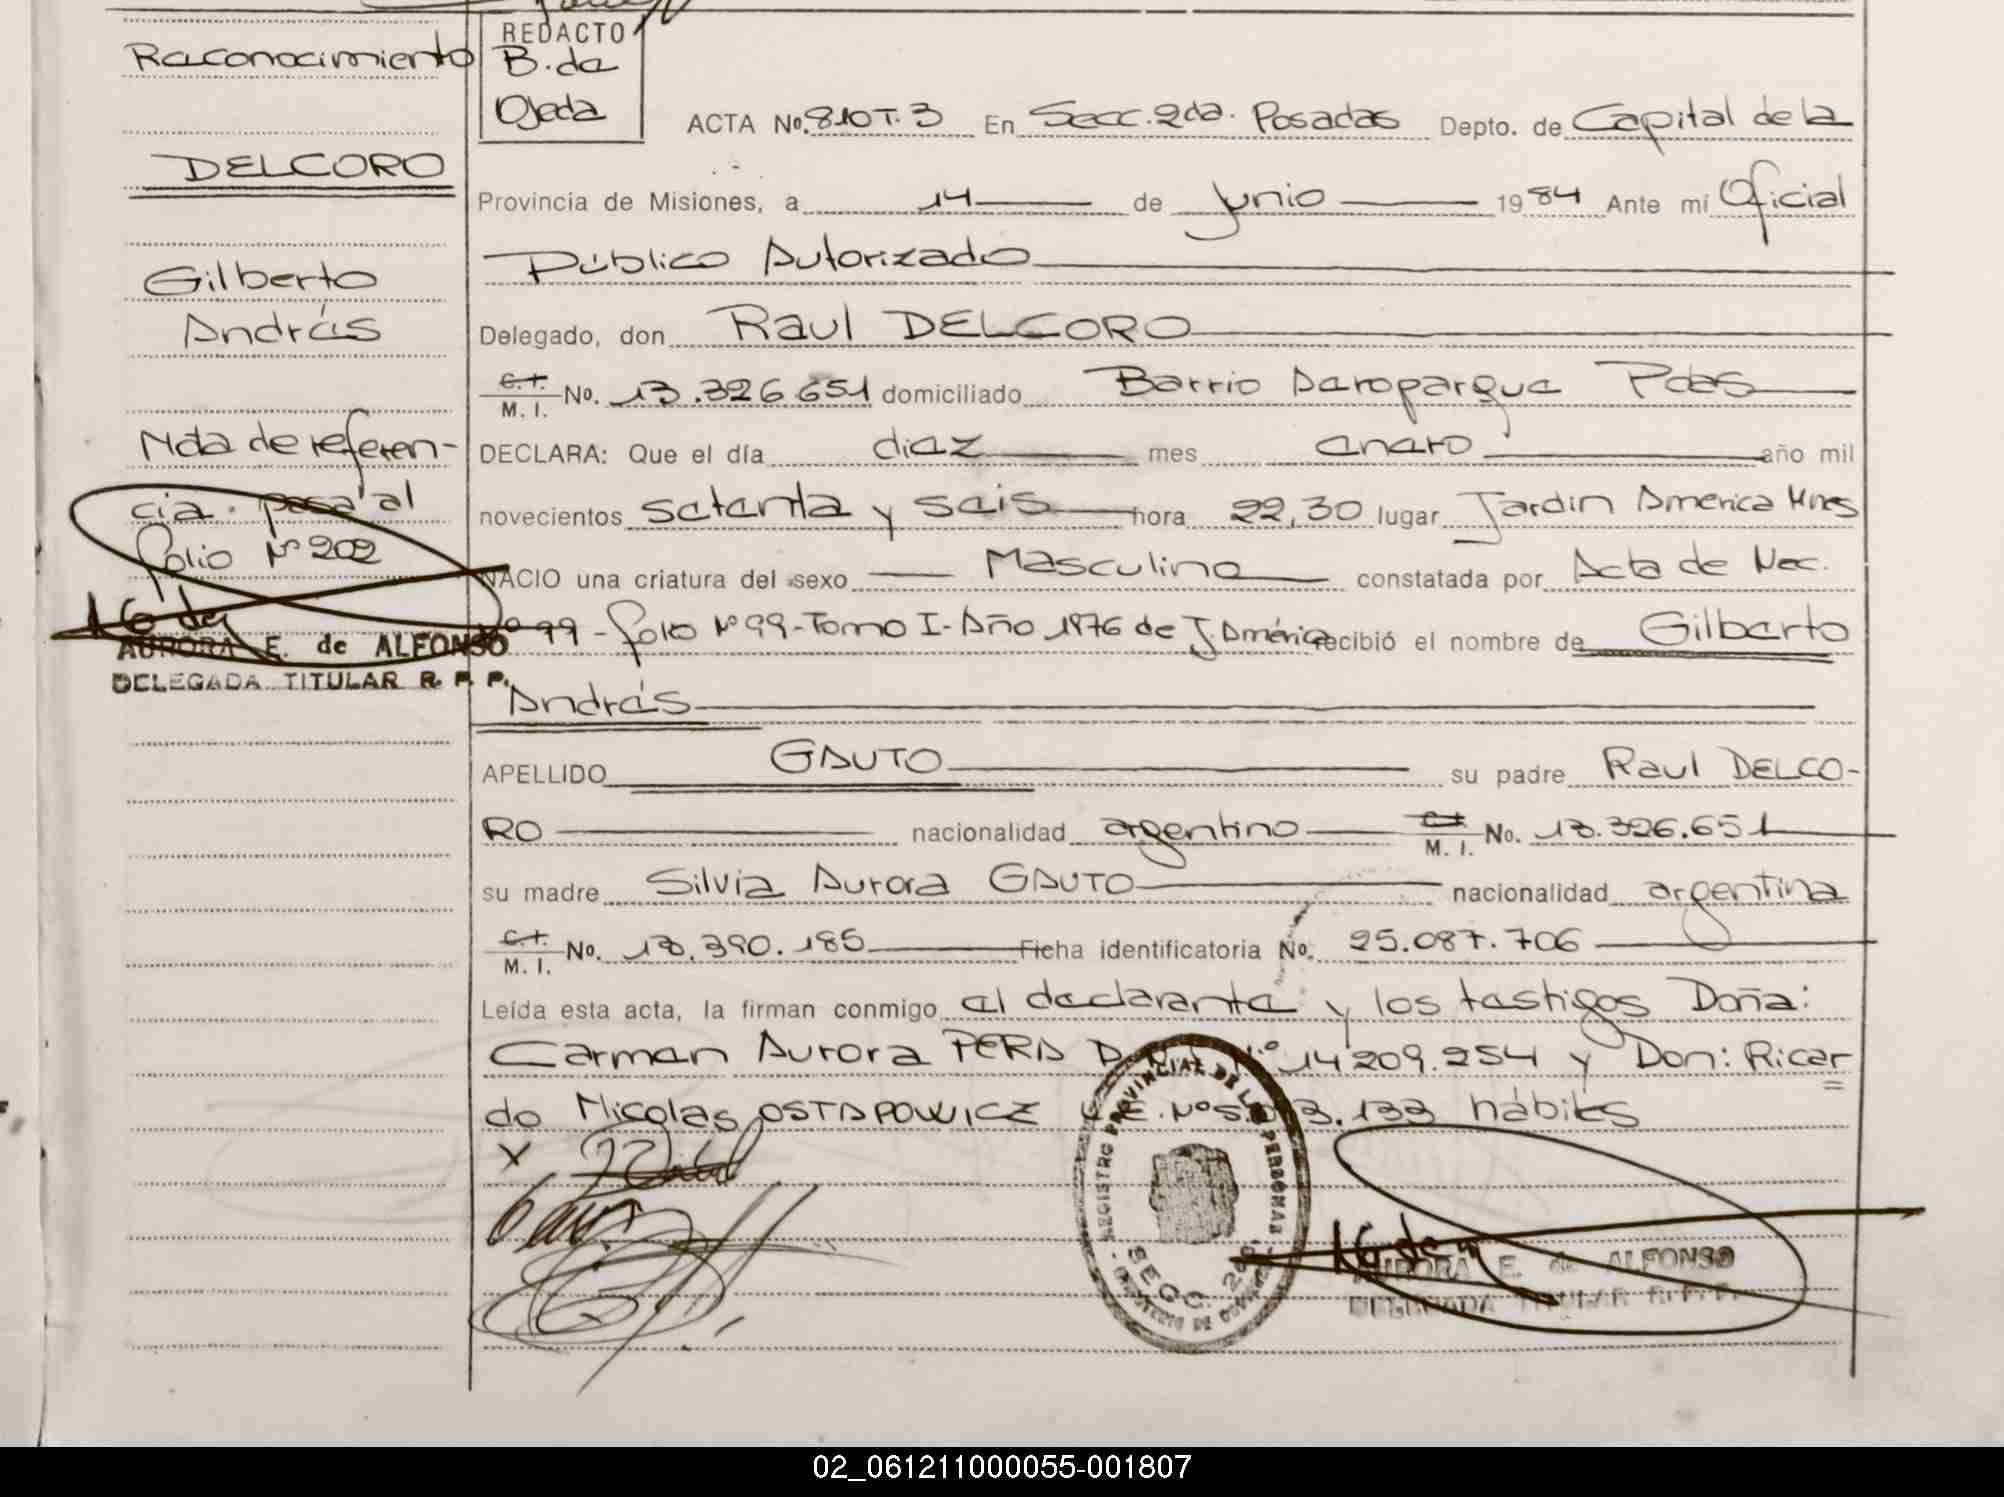 Reconocimiento
DELCORO
Gilberto
Andrés
Nota de referen-
cia. pasa al
folio Nº 202
AURORA E. de ALFONSO
DELEGADA TITULAR R. P. P.
REDACTO
B. de
Ojeda
ACTA No. 810 T. 3 En Secc. 2da. Posadas Depto. de Capital de la
Provincia de Misiones, a 14 de Junio 1984 Ante mí Oficial
Público Autorizado
Delegado, don Raul DELCORO
C.I. M. I. No. 13.326.651 domiciliado Barrio Aeroparque Pdas
DECLARA: Que el día diez mes enero año mil
novecientos setenta y seis hora 22,30 lugar Jardin America Mnes
NACIO una criatura del sexo Masculino constatada por Acta de Nac.
Nº 99 - folio Nº 99 - Tomo I - Año 1976 de J. América recibió el nombre de Gilberto
Andrés
APELLIDO GAUTO su padre Raul DELCO-
RO nacionalidad argentino C.I. M. I. No. 13.326.651
su madre Silvia Aurora GAUTO nacionalidad argentina
C.I. M. I. No. 13.390.185 Ficha identificatoria No. 25.087.706
Leída esta acta, la firman conmigo el declarante y los testigos Doña:
Carmen Aurora PERA D.N.I. Nº 14209.254 y Don: Ricar
do Nicolas OSTAPOWICZ Nº 133 hábiles
REGISTRO PROVINCIAL DE LAS PERSONAS
SECC. 2da.
AURORA E. de ALFONSO
DELEGADA TITULAR R. P. P.
02_061211000055-001807